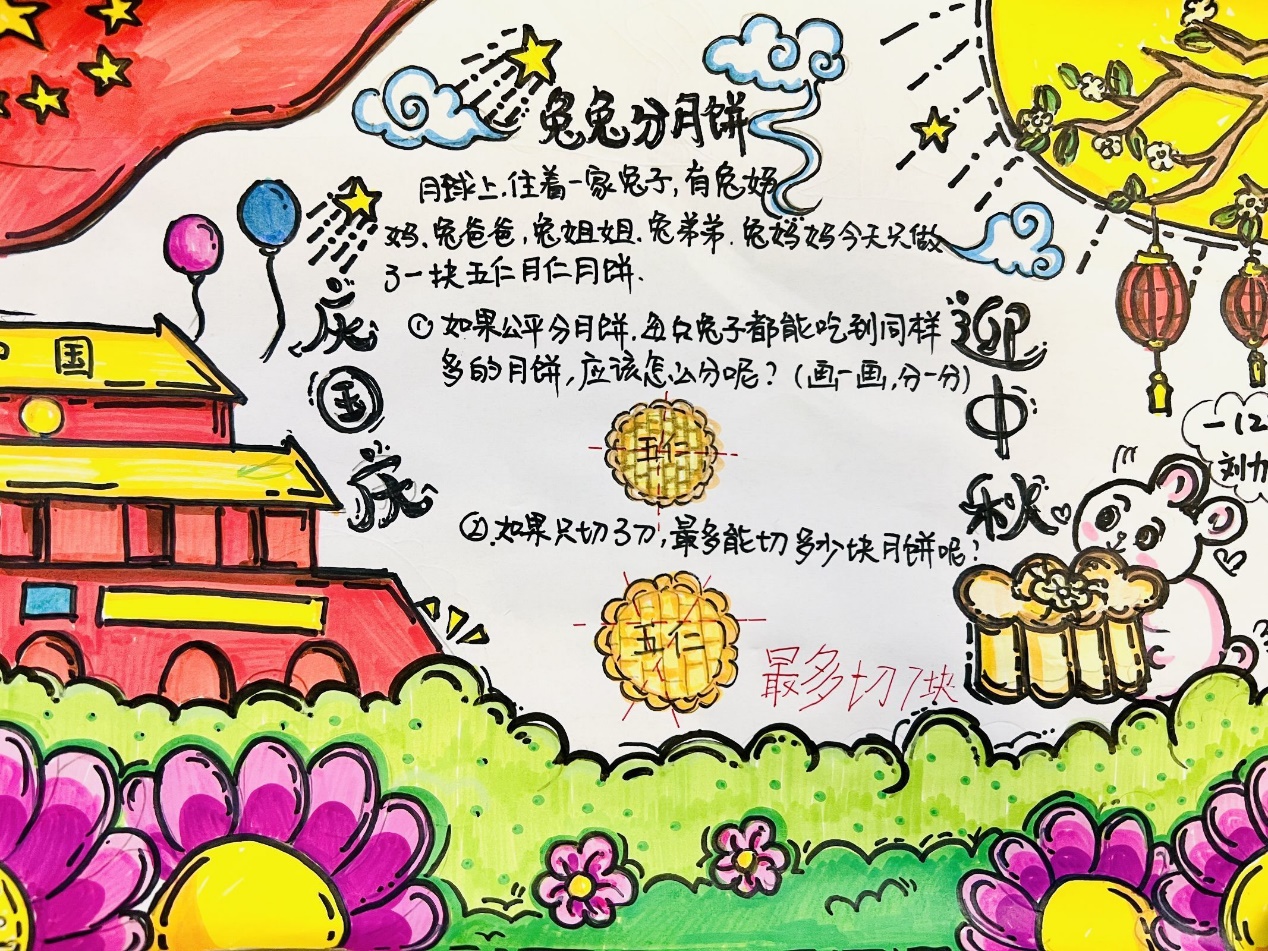 兔兔分月饼
月球上.住着一家兔子,有兔妈
妈.兔爸爸,兔姐姐.兔弟弟.兔妈妈今天只做
了一块五仁月仁月饼.
①如果公平分月饼.每只兔子都能吃到同样
多的月饼,应该怎么分呢?(画一画,分一分)
五仁
②.如果只切3刀,最多能切多少块月饼呢?
五仁
最多切7块
庆国庆
迎中秋
国
一12
刘